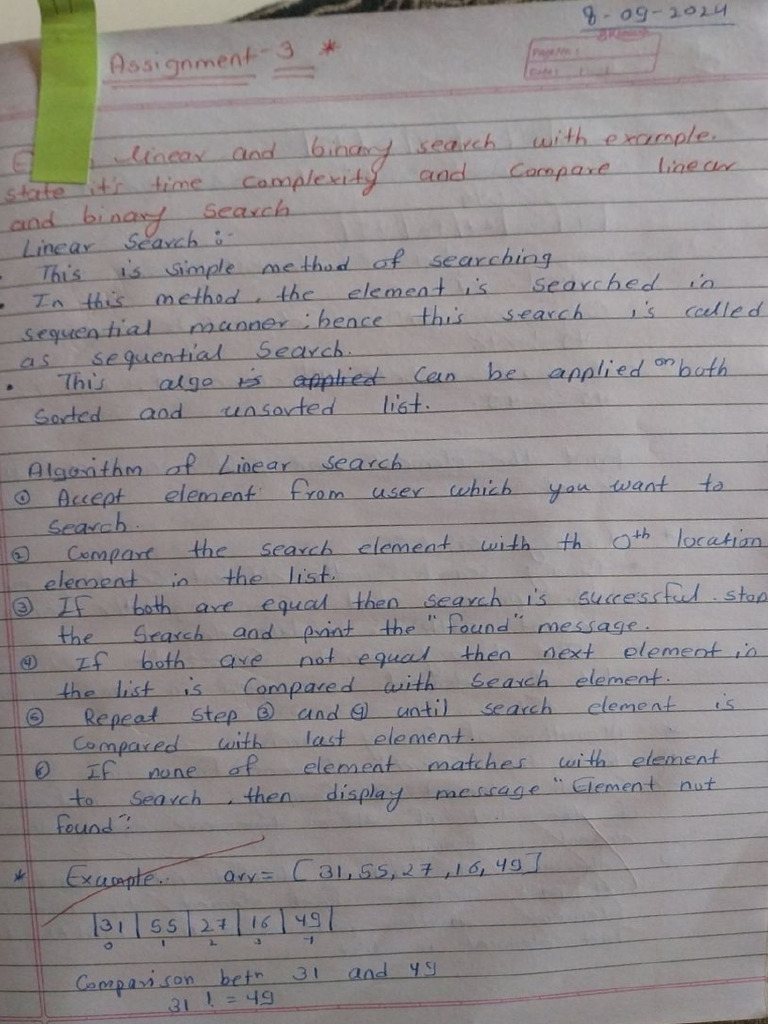 8-09-2024
Assignment-3 *
PAGE No:
DATE: / /
linear and binary search with example.
state it's time complexity and compare linear
and binary search
Linear Search :-
• This is simple method of searching
• In this method, the element is searched in
sequential manner; hence this search is called
as sequential Search.
• This algo is applied can be applied on both
sorted and unsorted list.
Algorithm of Linear search
① Accept element from user which you want to
search.
② Compare the search element with th 0th location
element in the list.
③ If both are equal then search is successful. stop
the search and print the "found" message.
④ If both are not equal then next element in
the list is compared with search element.
⑤ Repeat step ③ and ④ until search element is
compared with last element.
⑥ If none of element matches with element
to search, then display message "Element not
found".
* Example.. arr = [31,55,27,16,49]
|31|55|27|16|49|
0 1 2 3 4
Comparison betn 31 and 49
31 != 49